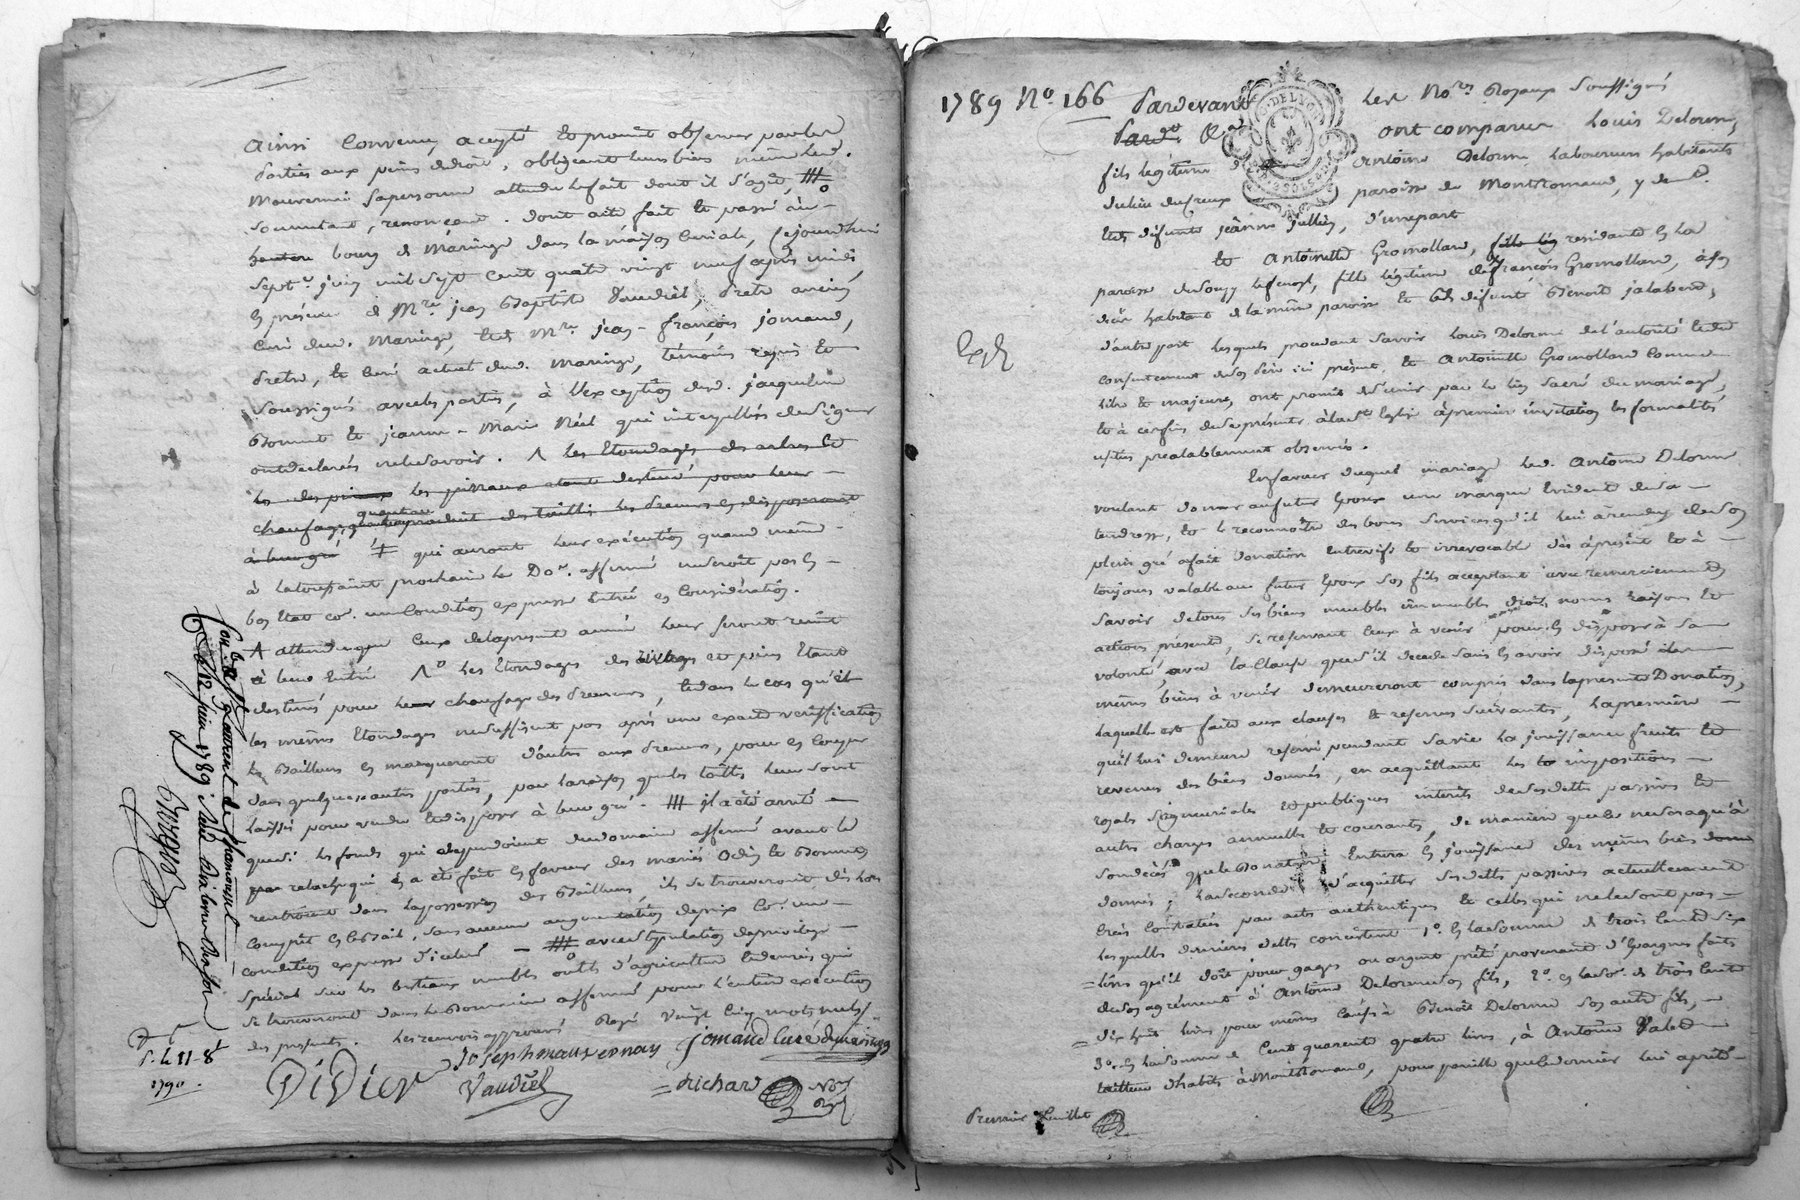 ainsi Convenu, accepté et promit observer par les
parties aux peines de droit, obligeant leurs biens même led.
Mauvernai sa personne attendu le fait dont il s'agit,
soumettant, renonçant. dont acte fait et passé au
bourg de Maringe dans la maison curiale, cejourdhui
sept juin mil sept cent quatre vingt neuf après midi
en présence de Mre jean Baptiste Vaudiel, Prêtre ancien
curé dud. Maringe, et de Mre jean-françois jomand,
Prêtre, et curé actuel dud. Maringe, témoins requis et
soussignés avec les parties, à l'exception de jacqueline
Bonnet et jeanne-Marie Réel qui interpellées de signer
ont déclarés ne le savoir. les Etondages des arbres et
les
chaufage, quant au produit des taillis les Preneurs en disposeront
à leur gré qui auront leur exécution quand même
à la toussaint prochaine le Dne affermé ne seroit pas en
bon Etat co. une Condition expresse Entrée en Considération.
attendu que ceux de la présente année leur seront remit
à leur Entrée les Etondages des et pins Etant
destinés pour chaufage des Preneurs, et dans le cas qu'il
les mêmes Etondages ne suffisent pas après une exacte vérification
les Bailleurs en marqueront d'autres aux Preneurs, pour en couper
dans quelques autres parties, pour la raison que les taillis leur sont
laissés pour vendre et disposer à leur gré. il a été arrêté
que les fonds qui dependoient du domaine affermé avant le
relache qui en a été fait en faveur des mariés Odin et Bonnet
rentroient dans la possession des Bailleurs, ils se trouveront dès lors
compris en le bail, sans aucune augmentation de prix co. une
condition expresse d'icelui avec stipulation de privilège
spécial sur les bestiaux meubles outils d'agriculture et denrées qui
se trouveront dans le domaine affermé pour l'entière exécution
des présentes. les renvois approuvés Rayé vingt cinq mots nuls
joseph mauvernay jomand Curé de maringe
DiDier Vaudiel Richard Nore
Ryl
Con.lé à St Laurent de Chamousset
le 12 juin 1789
1790.
1789 No 166 Pardevant les Nores Royaux soussignés
ont comparu Louis Delorme,
fils légitime Antoine Delorme laboureur habitants
du lieu du Creux paroisse de Montromand, y de
et de défunte jeanne jullien, d'une part
et Antoinette Gromollard, residante en la
paroisse de Souzy fille légitime de françois Gromollard,
habitant de la même paroisse et de défunte Benoite jalabert,
d'autre part lesquels procedant savoir Louis Delorme de l'autorité et du
consentement de son Père ici présent, et Antoinette Gromollard comme
libre et majeure, ont promit de s'unir par le lien sacré du mariage,
et à ces fins de se présenter à la ste Eglise à première invitation les formalités
usitées préalablement observées.
En faveur duquel mariage led. Antoine Delorme
voulant donner au futur Epoux une marque Evidente de sa
tendresse, et le reconnoitre des bons services qu'il lui à rendu, de son
plein gré a fait donation Entrevifs et irrévocable dès àprésent et à
toujours valable au futur Epoux son fils acceptant avec remerciements
savoir de tous ses biens meubles immeubles droits noms raisons et
actions présents, se réservant ceux à venir pour en disposer à sa
volonté, avec la clause que s'il décede sans en avoir disposé
mêmes biens à venir demeureront compris dans la présente Donation,
laquelle est faite aux clauses et réserves suivantes, la première
qu'il lui demeure réservé pendant sa vie la jouissance fruits et
revenus des biens donnés, en acquittant les impositions
royales seigneuriales et publiques interets de ses dettes passives et
autres charges annuelles et courantes, de manière que ce ne sera qu'à
son décès que le donataire Entrera en jouissance des mêmes biens
donnés; la seconde d'acquitter ses dettes passives actuellement
créés contractées par actes authentiques et celles qui ne le sont pas
lesquelles dernières dettes consistent 1o. en la somme de trois cents six
livres qu'il doit pour gages ou argent prêté provenant d'épargnes faits
de son agrément à Antoine Delorme son fils, 2o. en la so. de trois cents
dix huit livres pour mêmes causes à Benoit Delorme son autre fils,
3o. en la somme de Cent quarente quatre livres, à Antoine
tailleur d'habits à Montromand, pour pareille que ce dernier lui a prêté
Premier feuillet